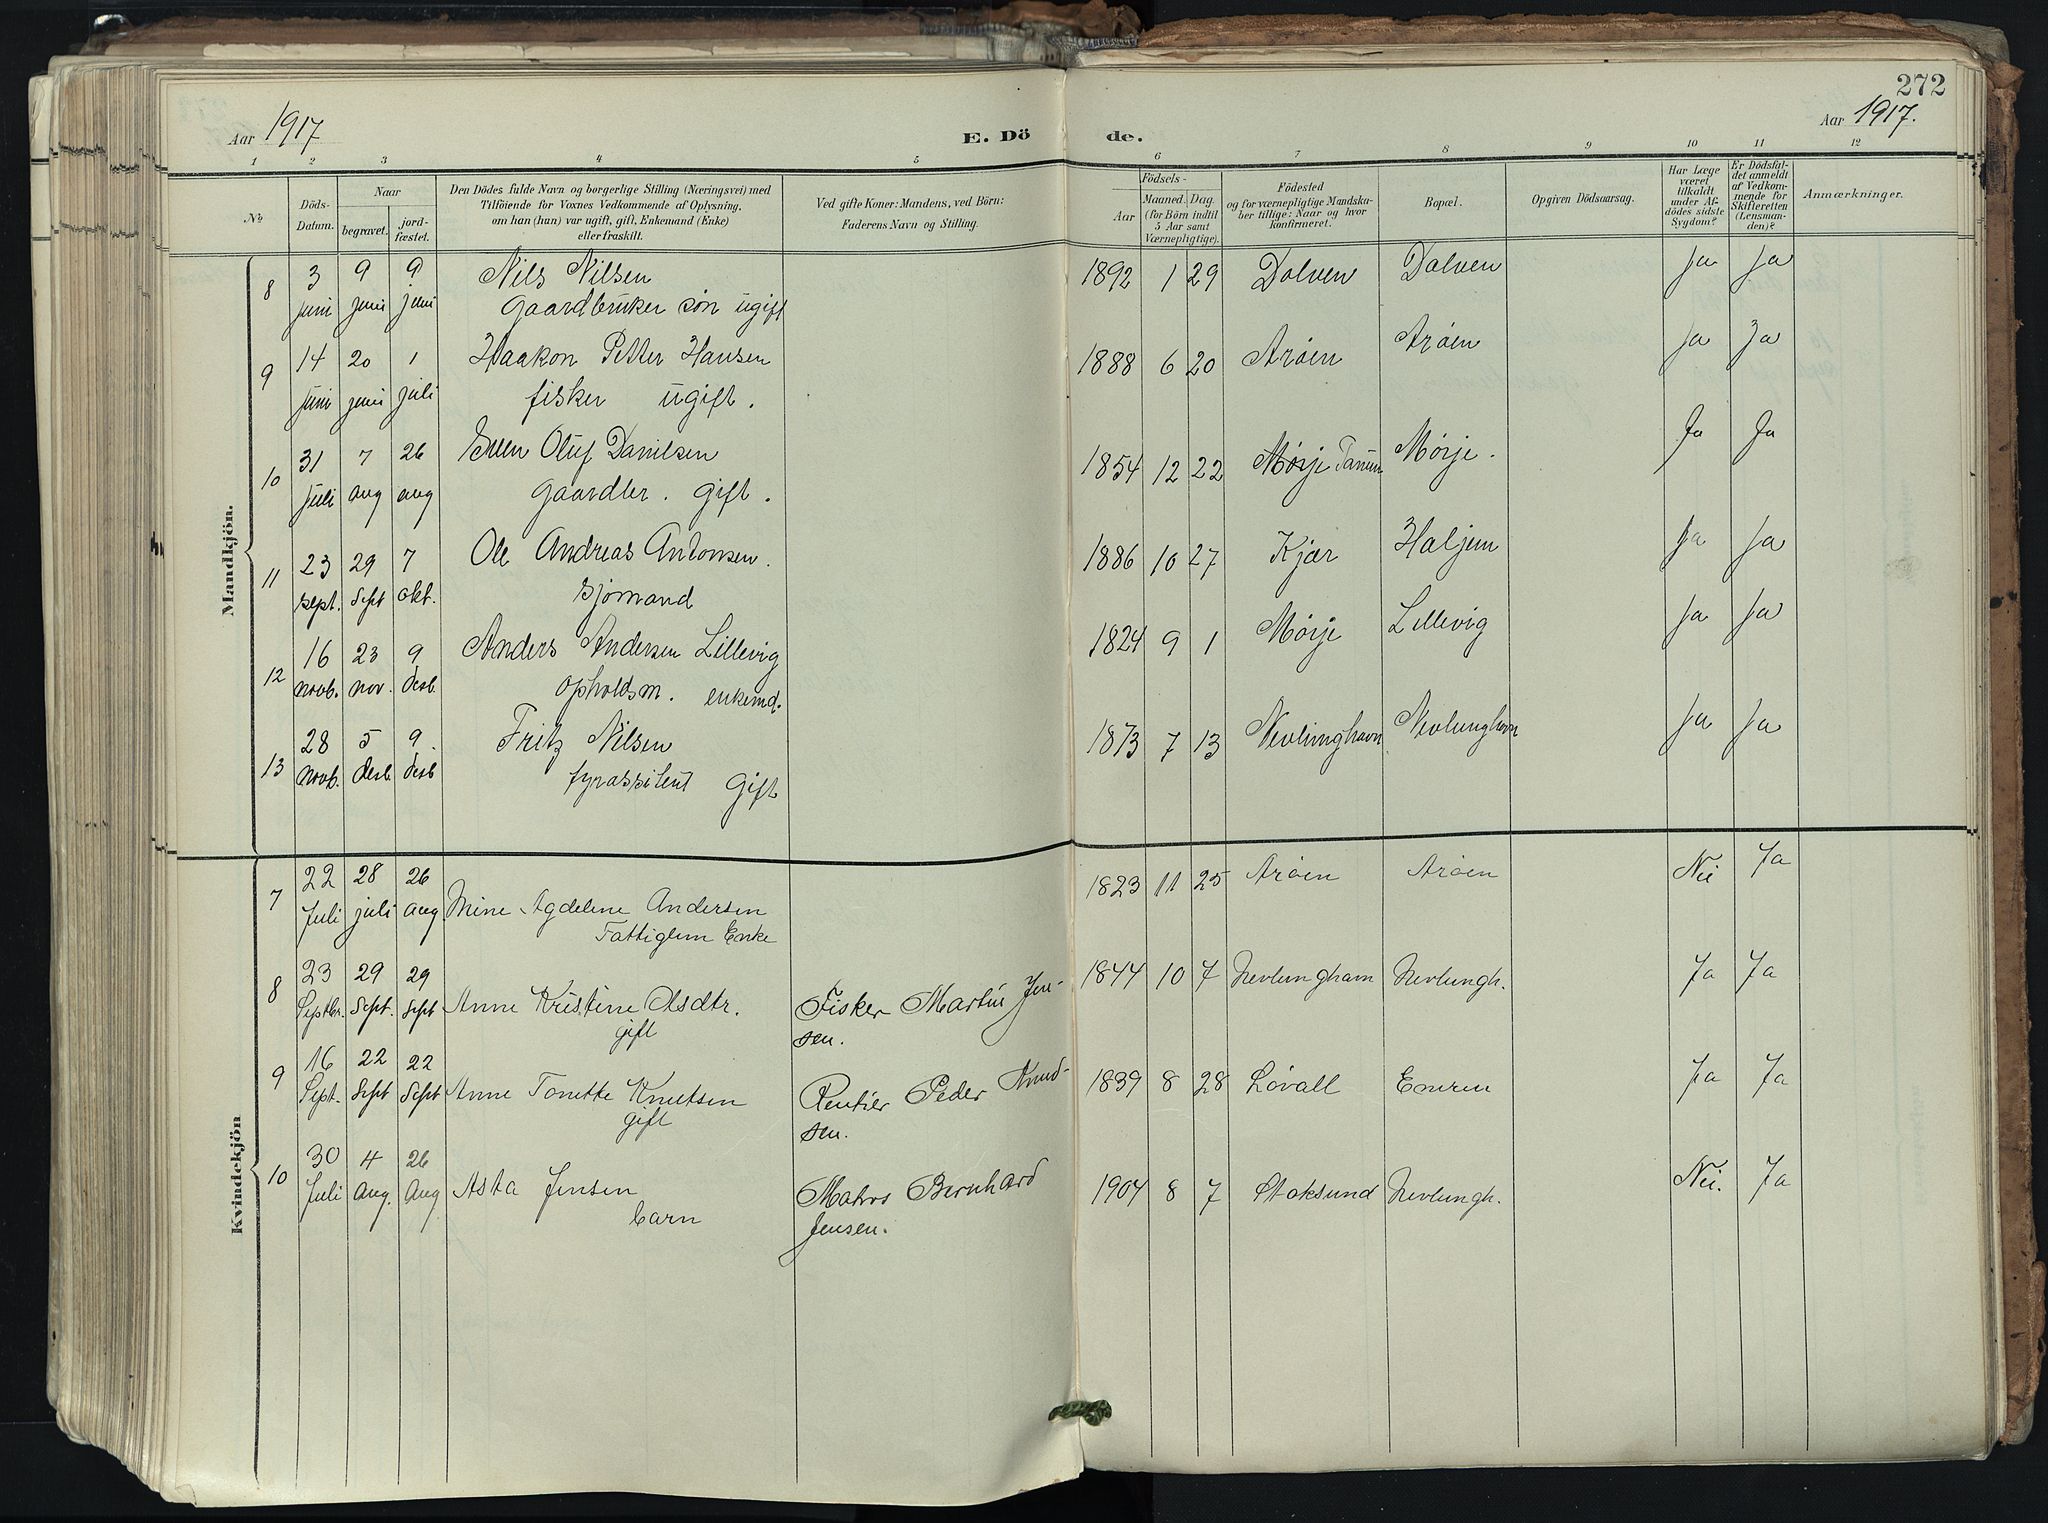 272
Aar 1917 E. Dö de. Aar 1917.
1 2 3 4 5 6 7 8 9 10 11 12
No
Döds-
Datum.
Naar
begravet.
jord-
fæstet.
Den Dödes fulde Navn og borgerlige Stilling (Næringsvei) med
Tilföiende for Voxnes Vedkommende af Oplysning,
om han (hun) var ugift, gift, Enkemand (Enke)
eller fraskilt.
Ved gifte Koner: Mandens, ved Börn:
Faderens Navn og Stilling.
Födsels-
Aar
Maaned. Dag.
(for Börn indtil
5 Aar samt
Værnepligtige).
Födested
og for værnepligtige Mandska-
ber tillige: Naar og hvor
konfirmeret.
Bopæl.
Opgiven Dödsaarsag.
Har Læge
været
tilkaldt
under Af-
dödes sidste
Sygdom?
Er Dödsfal-
det anmeldt
af Vedkom-
mende for
Skifteretten
(Lensman-
den)?
Anmærkninger.
Mandkjön.
8 3 9 9 Nils Nilsen 1892 1 29 Dolven Dolven Ja Ja
juni juni juni Gaardbruker søn ugift
9 14 20 1 Haakon Petter Hansen 1888 6 20 Arøen Arøen Ja Ja
juni juni juli fisker ugift.
10 31 7 26 Even Oluf Danielsen 1854 12 22 Mørje Tanum Mørje. Ja Ja
juli aug aug gaardbr. gift.
11 23 29 7 Ole Andreas Antonsen. 1886 10 27 Kjær Haljem Ja Ja
sept. Sept okt. Sjømand
12 16 23 9 Anders Andersen Lillevig 1824 9 1 Mørje Lillevig Ja Ja
novb. nov. desb. opholdsm. enkemd.
13 28 5 9. Fritz Nilsen 1873 7 13 Nevlunghavn Nevlunghavn Ja Ja
novb. desb. desb fyrassitent Gift
Kvindekjön
7 22 28 26 Mine Agdelene Andersen 1823 11 25 Arøen Arøen Nei Ja
Juli juli aug. Fattiglem Enke
8 23 29 29 Anne Kristine Olsdtr. Fisker Martin Jen- 1844 10 7 Nevlungham Nevlungh. Ja Ja
Septbr. Sept. Sept gift sen.
9 16 22 22 Anne Tonette Knutsen Rentier Peder Knud- 1839 8 28 Løvall Enuren Ja Ja
Sept. Sept Sept gift sen.
10 30 4 26 Asta Jensen Matros Bernhard 1904 8 7 Stoksund Nevlungh. Nei. Ja
Juli Aug. Aug barn Jensen.